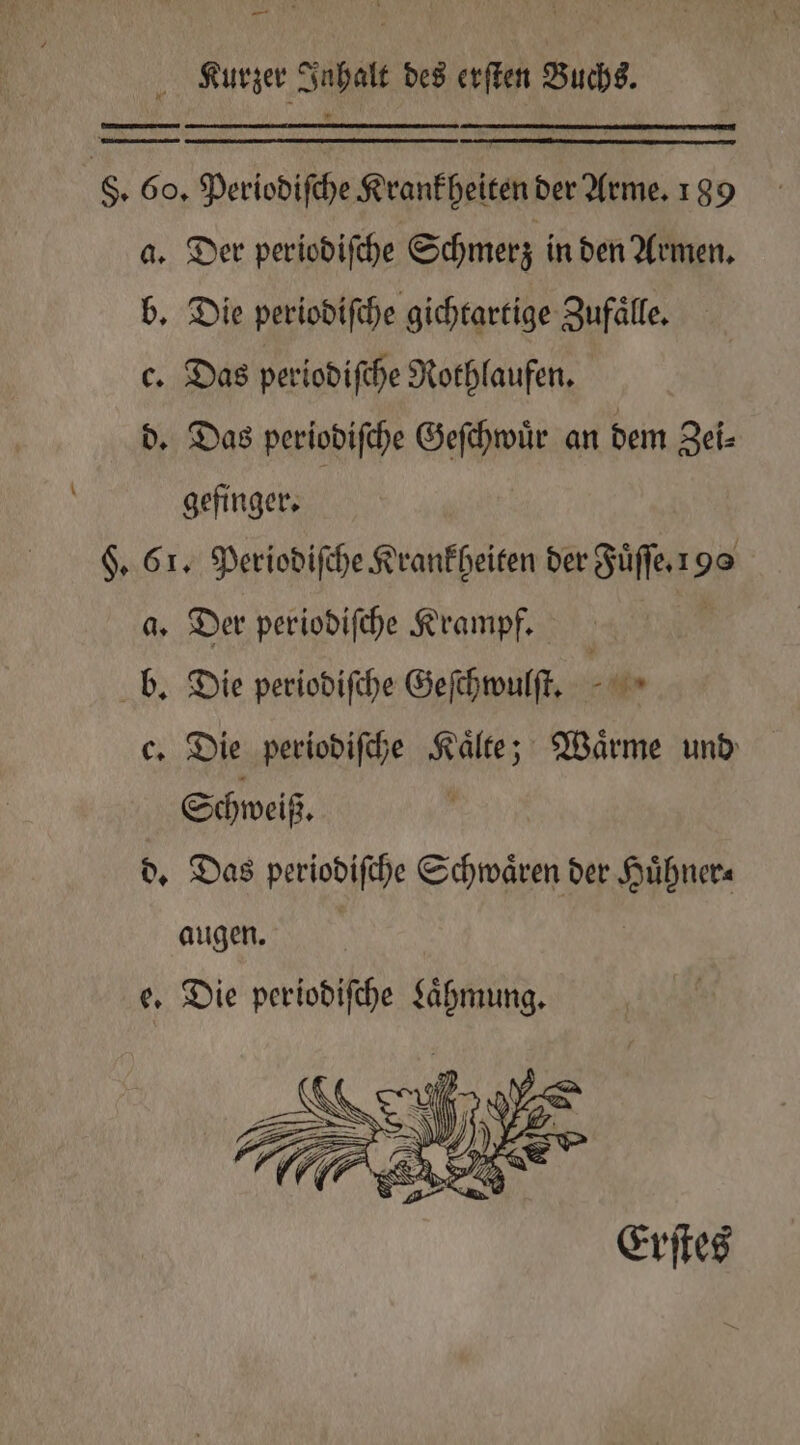 Kurzer Inhalt des erſten Buchs.
§. 60. Periodiſche Krankheiten der Arme. 189
a. Der periodiſche Schmerz in den Armen.
b. Die periodiſche gichtartige Zufaͤlle.
c. Das periodiſche Rothlaufen.
d. Das periodiſche Geſchwuͤr an dem Zei-
gefinger.
§. 61. Periodiſche Krankheiten der Fuͤſſe. 190
a. Der periodiſche Krampf.
b. Die periodiſche Geſchwulſt.
c. Die periodiſche Kaͤlte; Waͤrme und
Schweiß.
d. Das periodiſche Schwaͤren der Huͤhner-
augen.
e. Die periodiſche Laͤhmung.
Erſtes